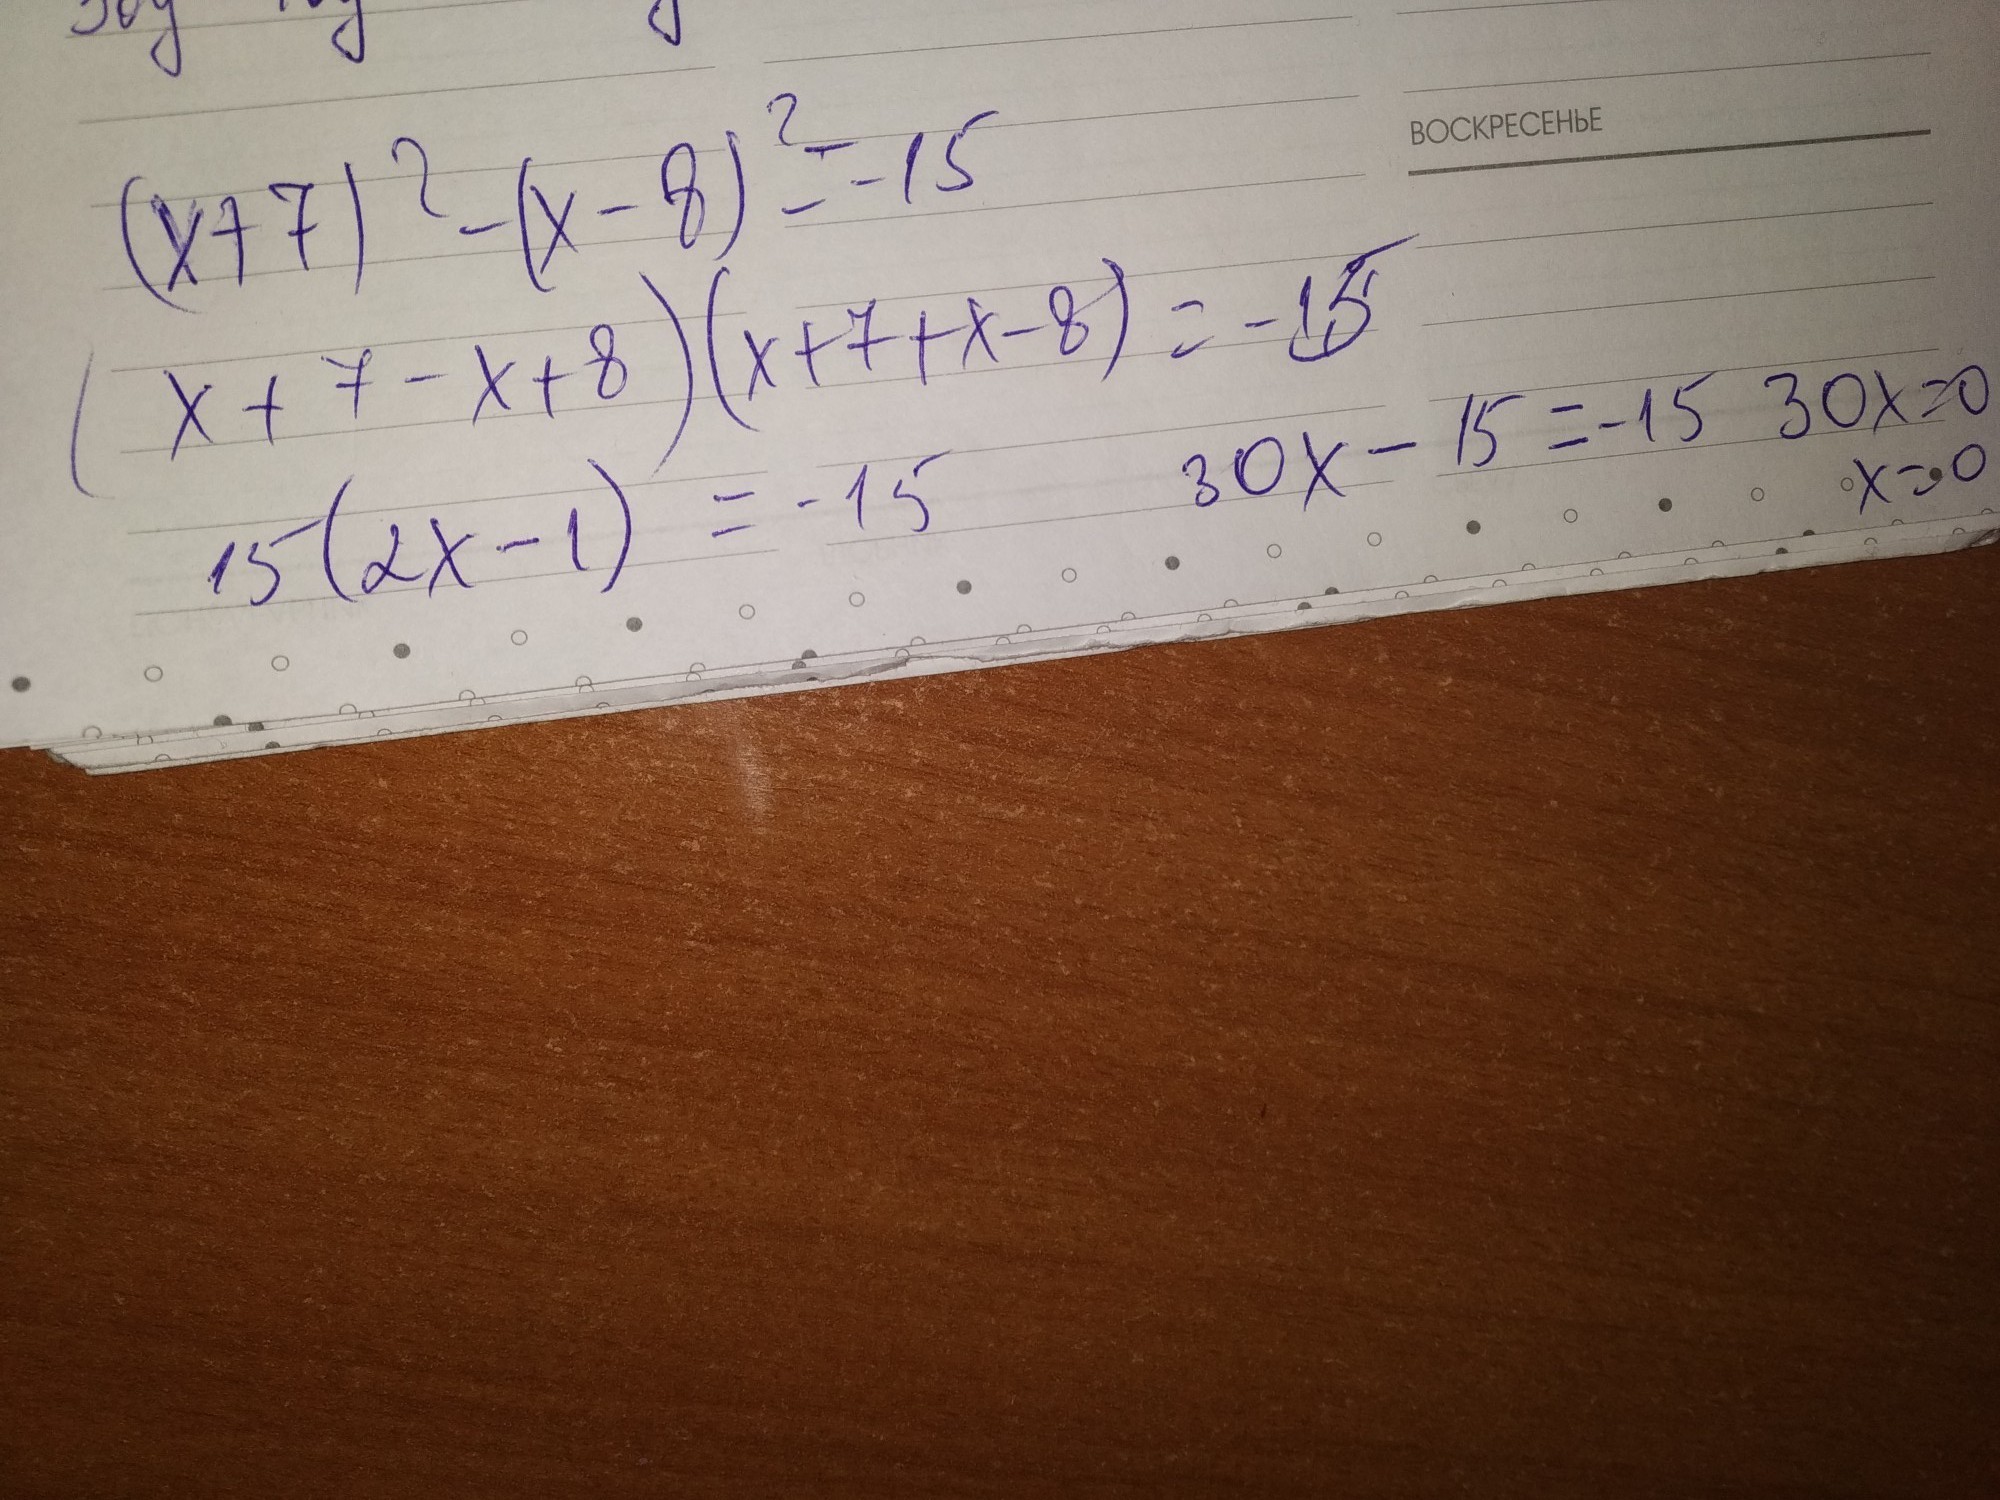 ВОСКРЕСЕНЬЕ
(x+7)² - (x-8)² = -15
(x+7-x+8)(x+7+x-8) = -15
15(2x-1) = -15 30x-15=-15 30x=0
x=0